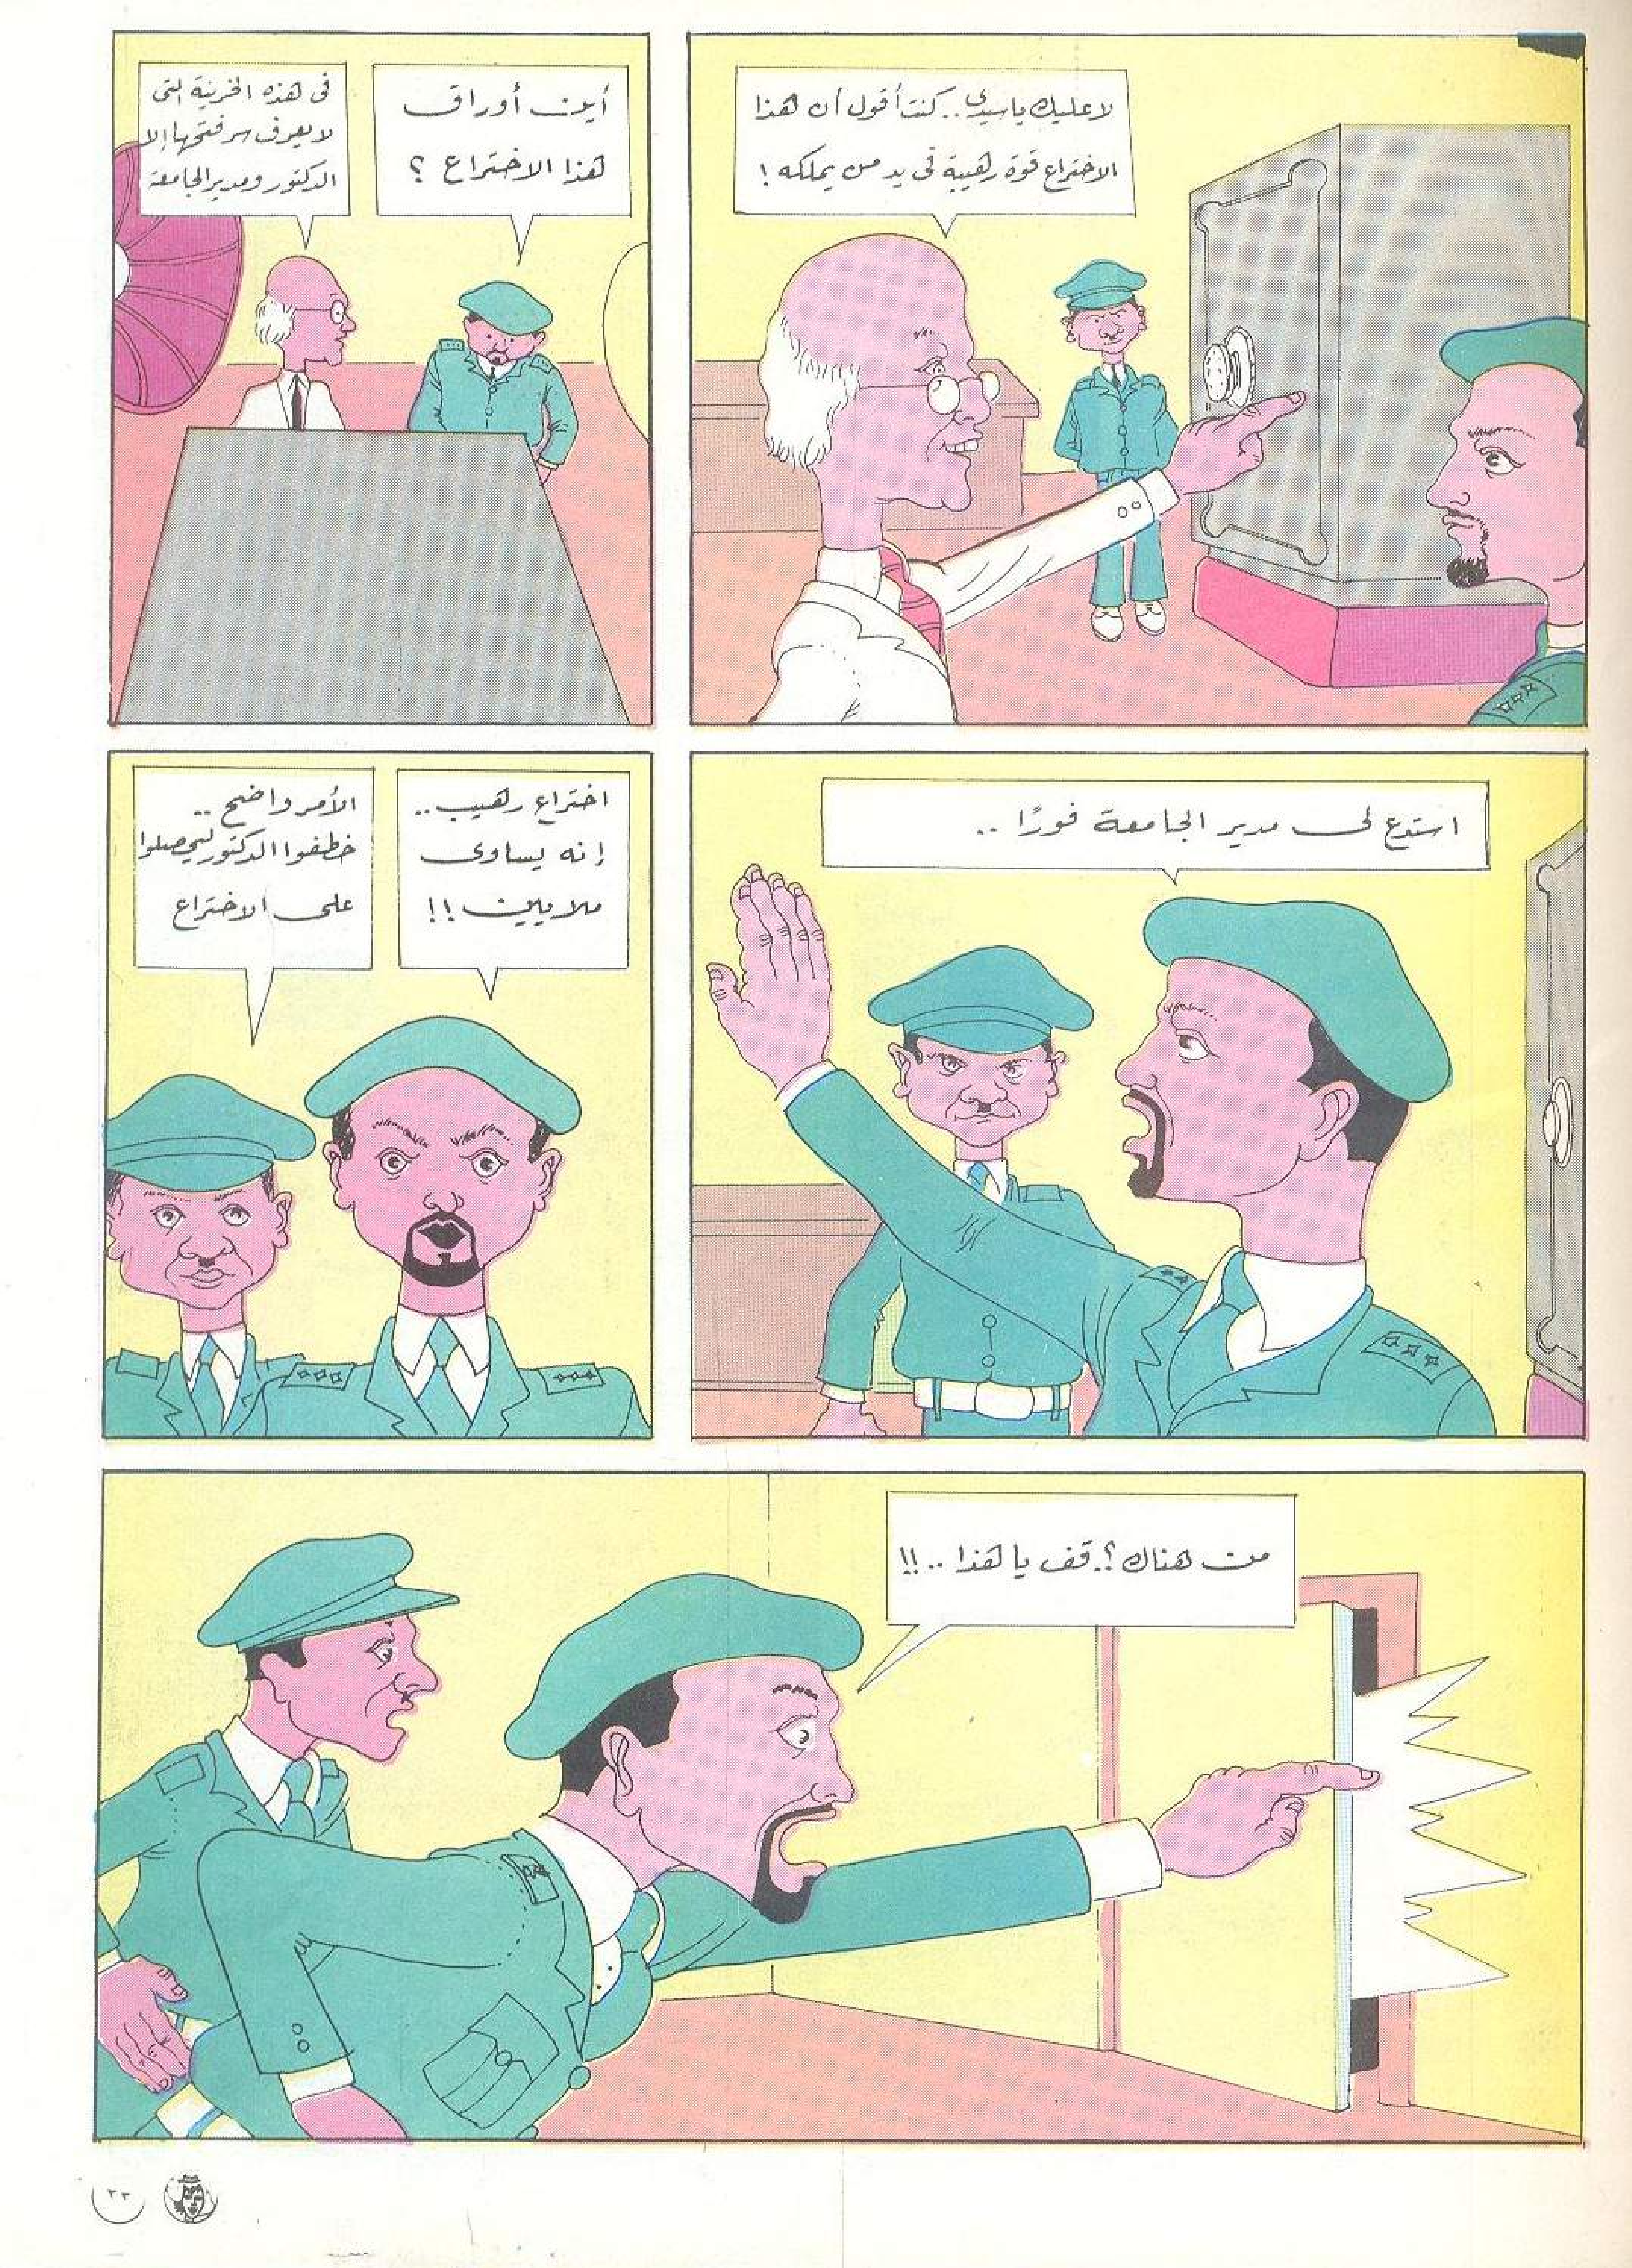 لا عليك يا سيدى .. كنت أقول أن هذا
الاختراع قوة رهيبة فى يد من يملكه !
أين أوراق
هذا الاختراع ؟
فى هذه الخزينة التى
لا يعرف سر فتحها إلا
الدكتور ومدير الجامعة
استدع لى مدير الجامعة فورًا ..
اختراع رهيب ..
إنه يساوى
ملايين !!
الأمر واضح ..
خطفوا الدكتور ليحصلوا
على الاختراع
من هناك ؟. قف يا هذا .. !!
٣٣